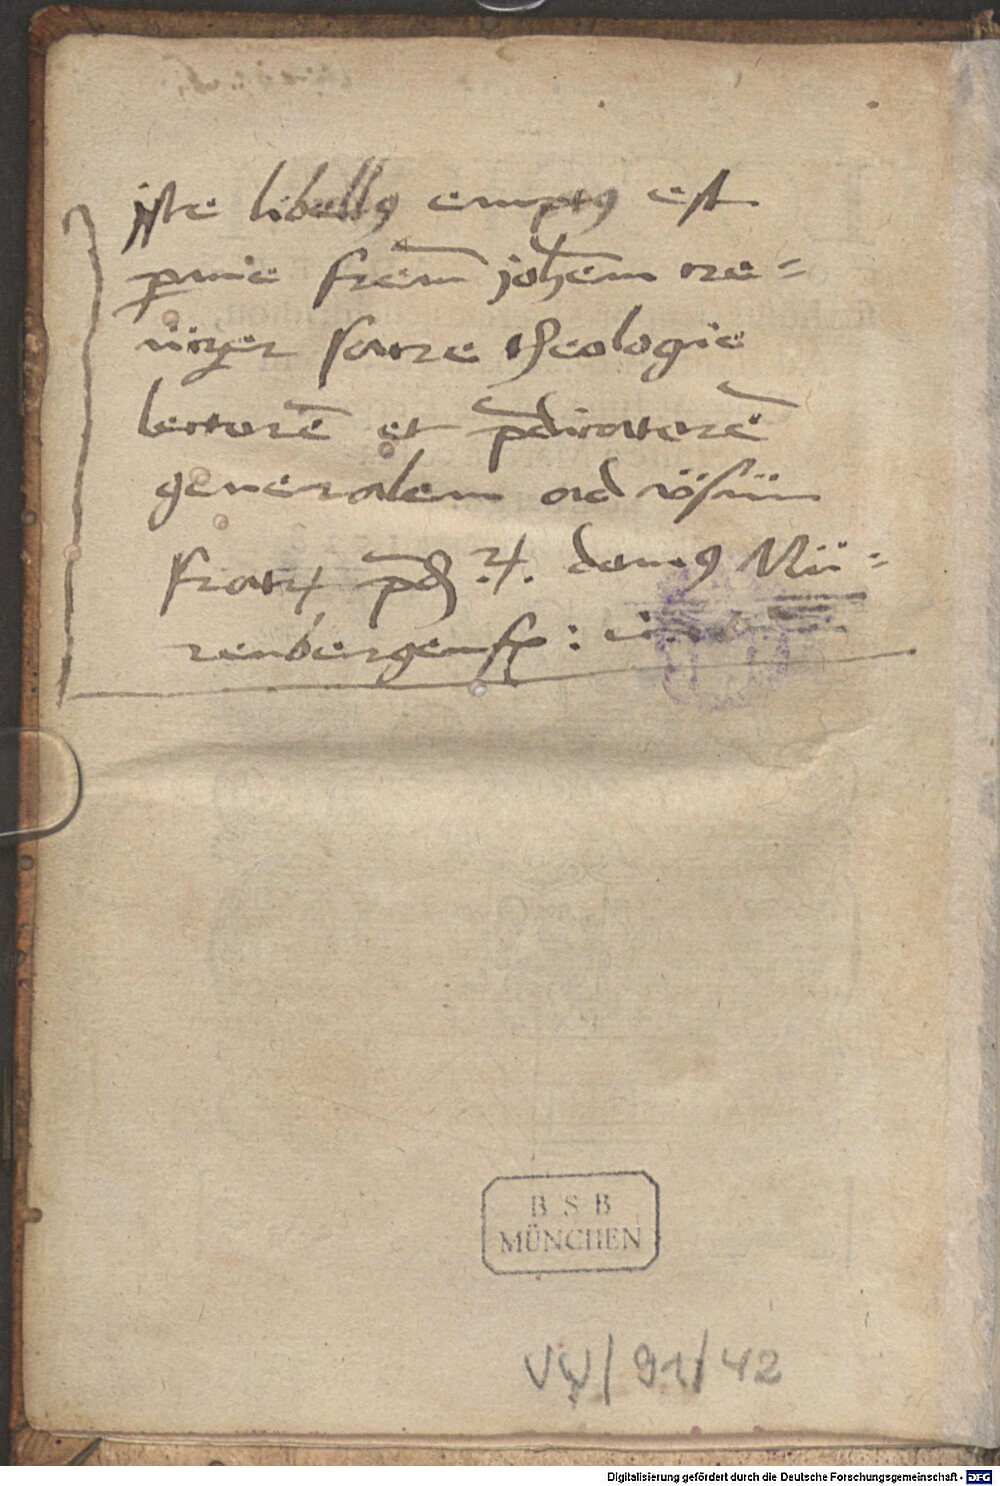 jste libellꝯ emptꝯ est
ꝑ me frem̄ joh̄em ne=
ẅyer sacre theologie
lectorē et p̄dicatorē
generalem ad vsum
fratrꝝ p̄dꝝ domꝯ Nü=
renbergensꝭ :
B S B
MÜNCHEN
VW/91/42
Digitalisierung gefördert durch die Deutsche Forschungsgemeinschaft - DFG